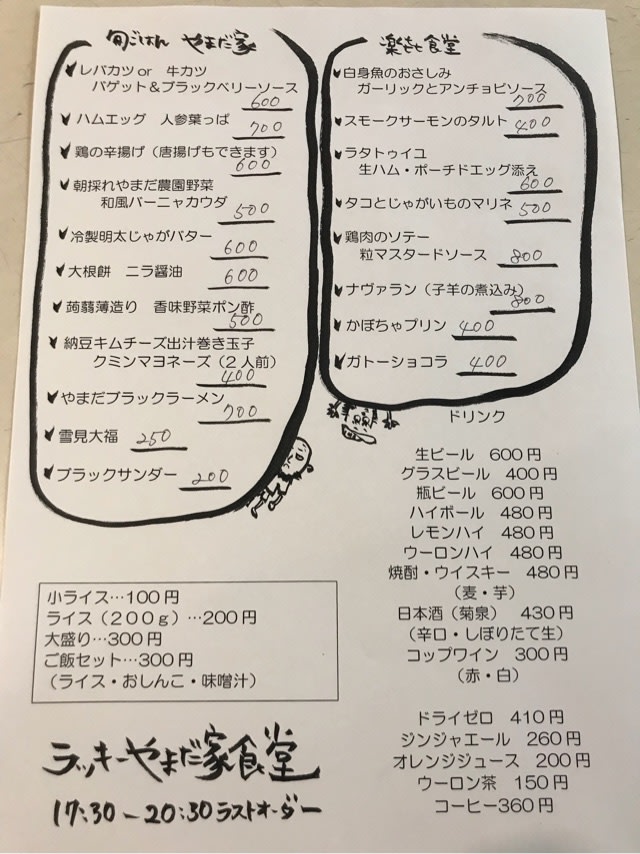 旬ごはん やまだ家
レバカツ or 牛カツ
バゲット＆ブラックベリーソース
600
ハムエッグ 人参葉っぱ
700
鶏の辛揚げ（唐揚げもできます）
600
朝採れやまだ農園野菜
和風バーニャカウダ
500
冷製明太じゃがバター
600
大根餅 ニラ醤油
600
蒟蒻薄造り 香味野菜ポン酢
500
納豆キムチーズ出汁巻き玉子
クミンマヨネーズ（２人前）
400
やまだブラックラーメン
700
雪見大福 250
ブラックサンダー 200
食堂
白身魚のおさしみ
ガーリックとアンチョビソース
700
スモークサーモンのタルト
400
ラタトゥイユ
生ハム・ポーチドエッグ添え
600
タコとじゃがいものマリネ 500
鶏肉のソテー
粒マスタードソース 800
ナヴァラン（子羊の煮込み）
800
かぼちゃプリン 400
ガトーショコラ 400
ドリンク
生ビール 600円
グラスビール 400円
瓶ビール 600円
ハイボール 480円
レモンハイ 480円
ウーロンハイ 480円
焼酎・ウイスキー 480円
（麦・芋）
日本酒（菊泉） 430円
（辛口・しぼりたて生）
コップワイン 300円
（赤・白）
ドライゼロ 410円
ジンジャエール 260円
オレンジジュース 200円
ウーロン茶 150円
コーヒー360円
小ライス…100円
ライス（２００ｇ）…200円
大盛り…300円
ご飯セット…300円
（ライス・おしんこ・味噌汁）
ラッキーやまだ家食堂
17:30－20:30ラストオーダー